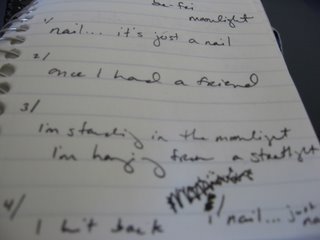 moonlight
1/ nail... it's just a nail
2/ once I had a friend
3/
I'm standing in the moonlight
I'm hanging from a streetlight
4/ I bit back
1/ nail... just